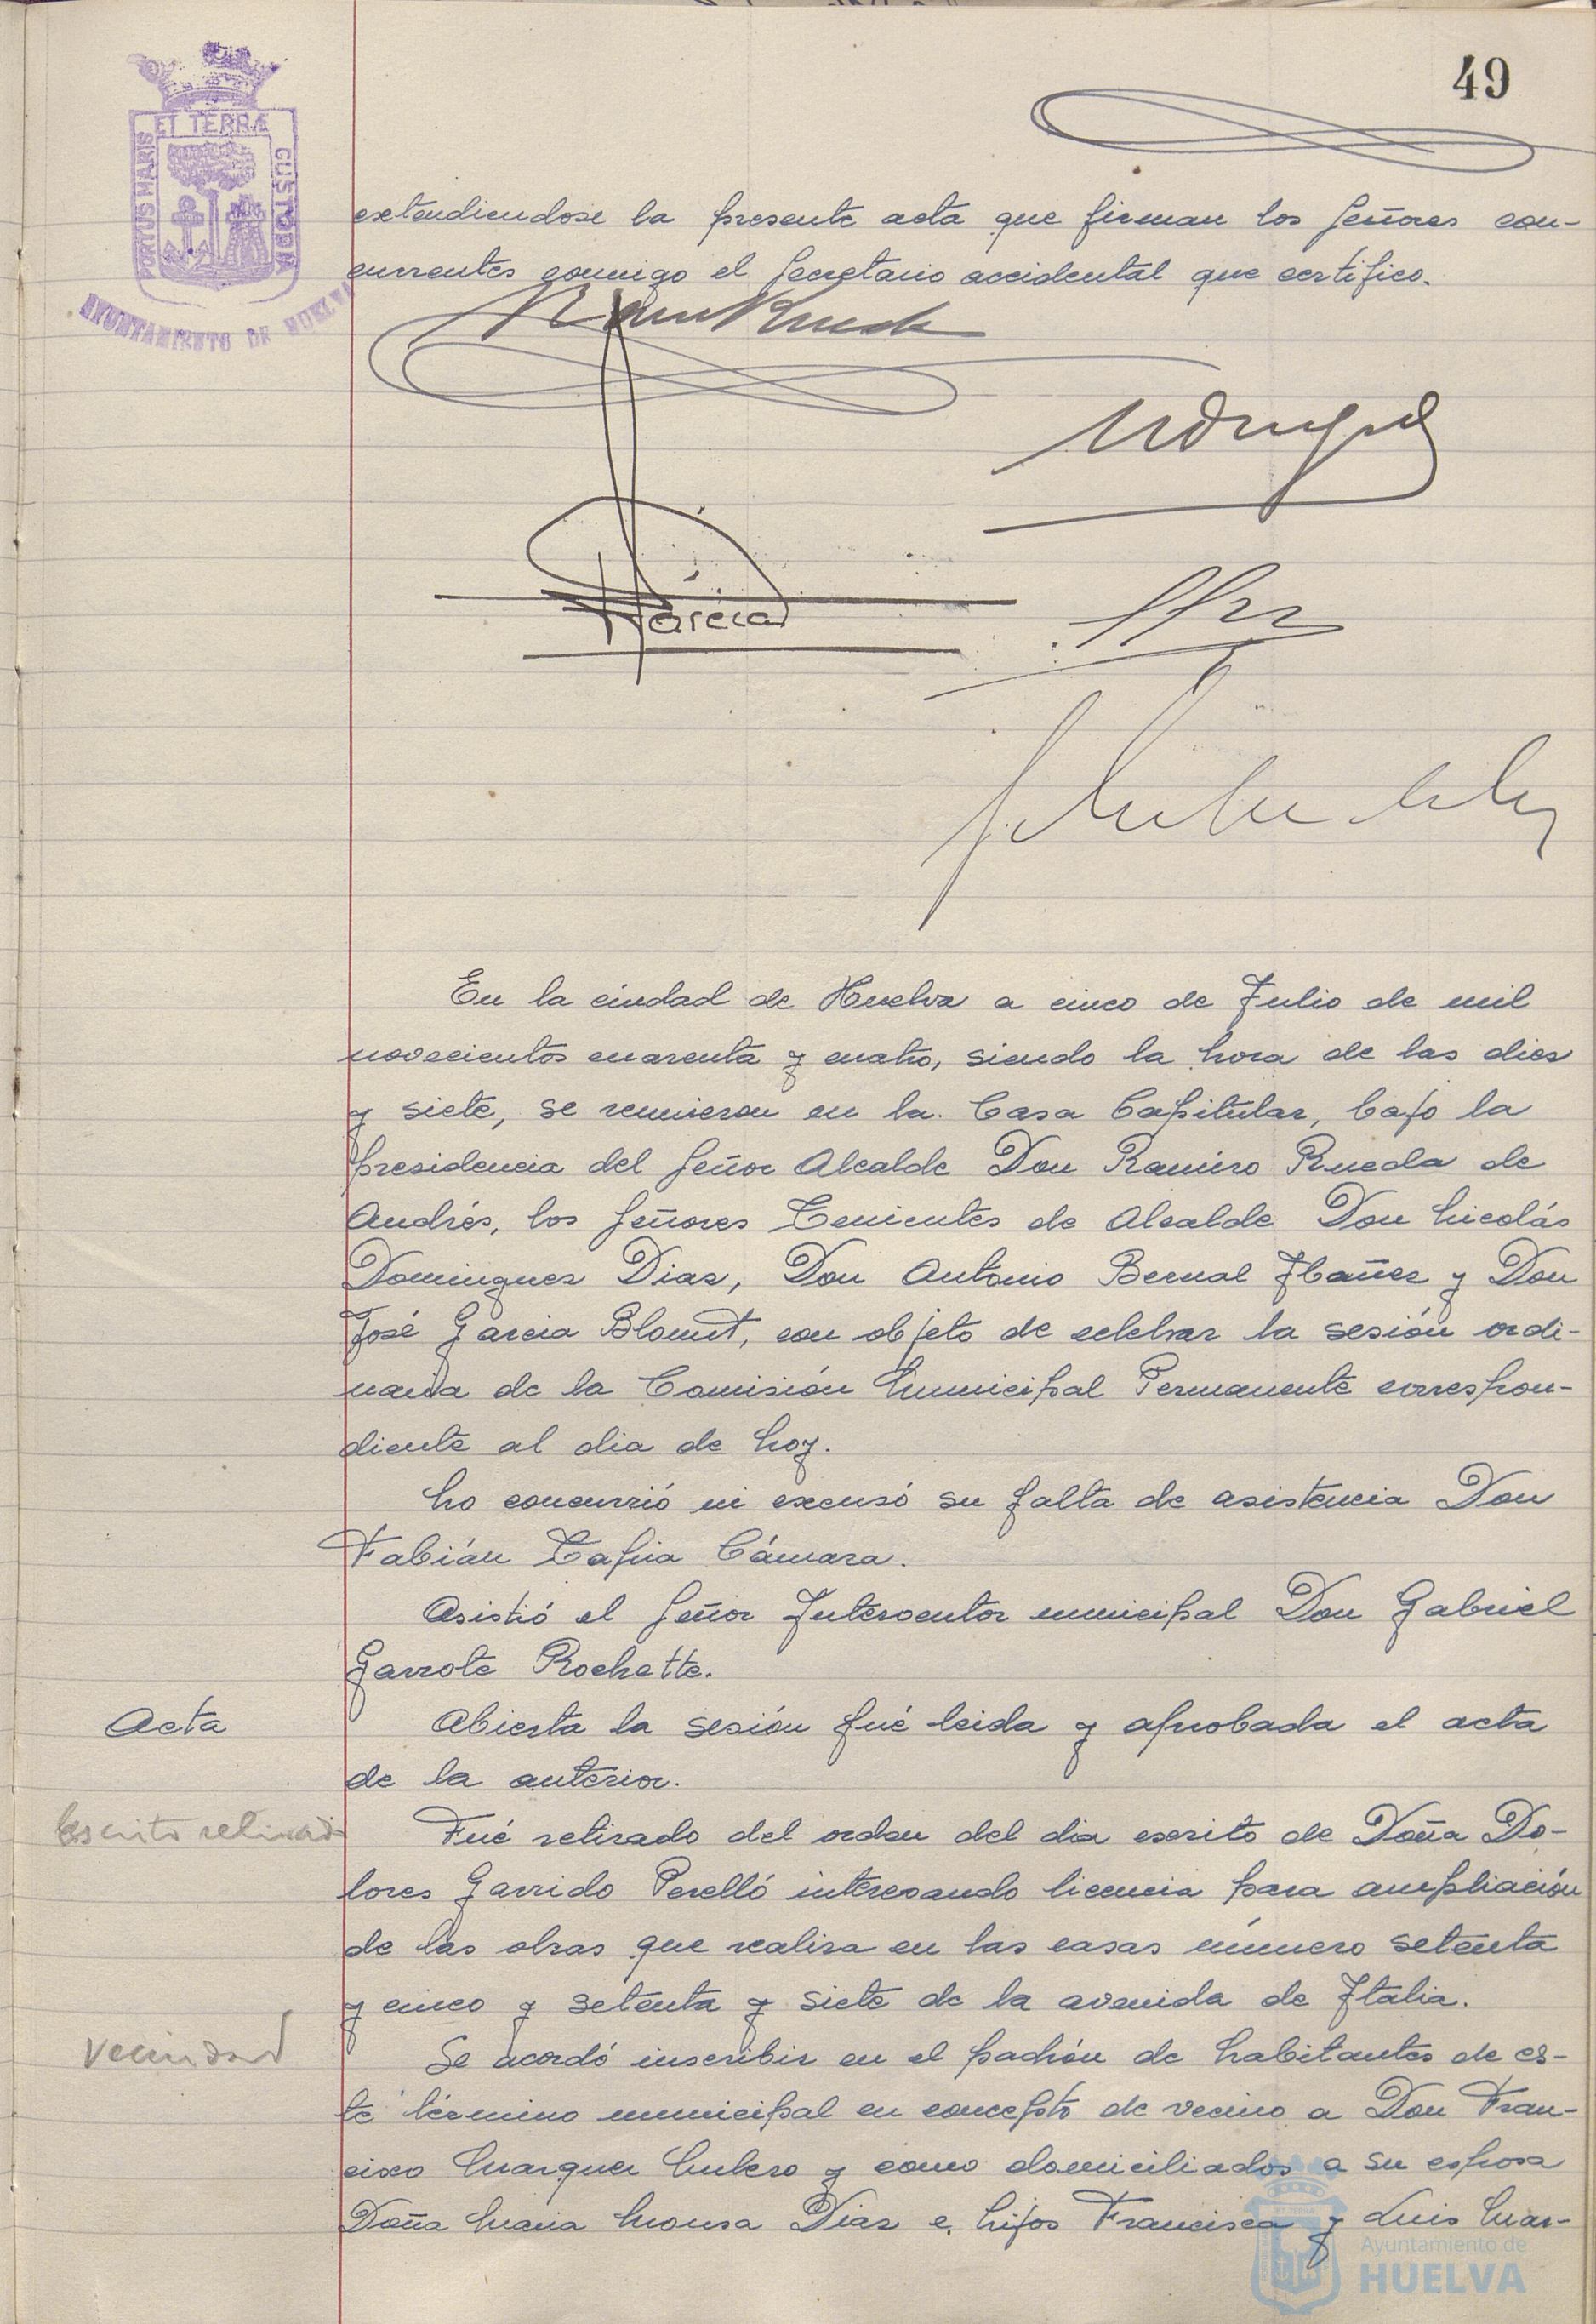 49
ET TERRÆ
PORTUS MARIS
CUSTODIA
AYUNTAMIENTO DE HUELVA
extendiendose la presente acta que firman los Señores con-
currentes conmigo el Secretario accidental que certifico.
García
En la ciudad de Huelva a cinco de Julio de mil
novecientos cuarenta y cuatro, siendo la hora de las diez
y siete, se reunieron en la Casa Capitular, bajo la
presidencia del Señor Alcalde Don Ramiro Rueda de
Andrés, los Señores Tenientes de Alcalde Don Nicolás
Dominguez Diaz, Don Antonio Bernal Ibañez y Don
José Garcia Blomut, con objeto de celebrar la sesión ordi-
naria de la Comisión Municipal Permanente correspon-
diente al dia de hoy.
No concurrió ni excusó su falta de asistencia Don
Fabián Tapia Cámara.
Asistió el Señor Interventor municipal Don Gabriel
Garrote Rochette.
Acta
Abierta la sesión fué leida y aprobada el acta
de la anterior.
Escrito retirado
Fué retirado del orden del dia escrito de Doña Do-
lores Garrido Perelló interesando licencia para ampliación
de las obras que realiza en las casas número setenta
y cinco y setenta y siete de la avenida de Italia.
Vecindad
Se acordó inscribir en el padrón de habitantes de es-
te término municipal en concepto de vecino a Don Fran-
cisco Marquez Mulero y como domiciliados a su esposa
Doña Maria Mousa Diaz e hijos Francisca y Luis Mar-
Ayuntamiento de
HUELVA